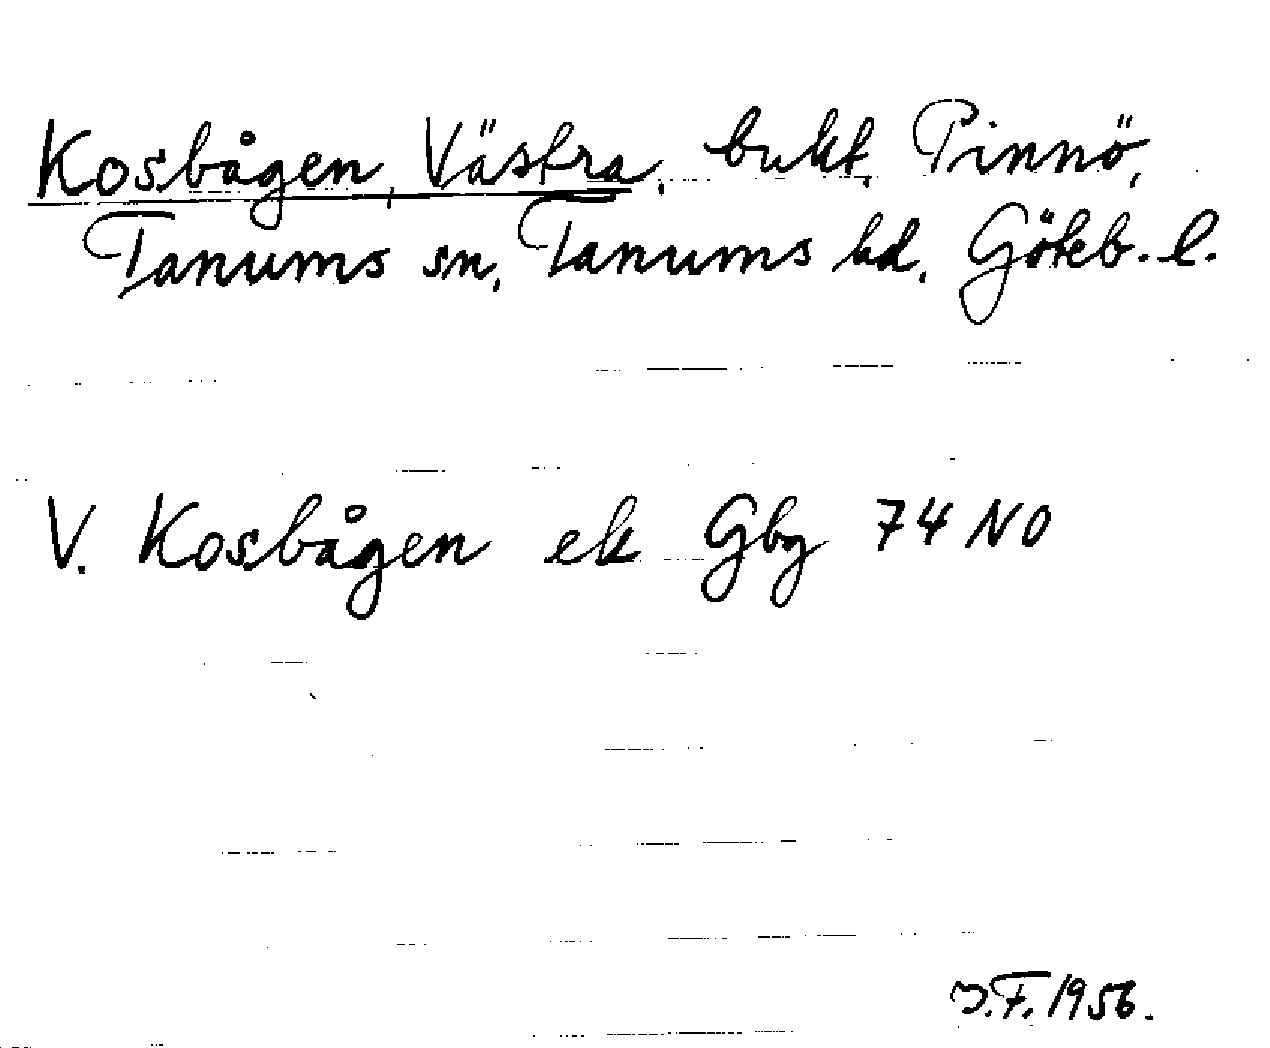 Kosbågen, Västra, bukt, Pinnö,
Tanums sn, Tanums hd, Göteb. l.
V. Kosbågen ek Gbg 74 NO
J.F. 1956.